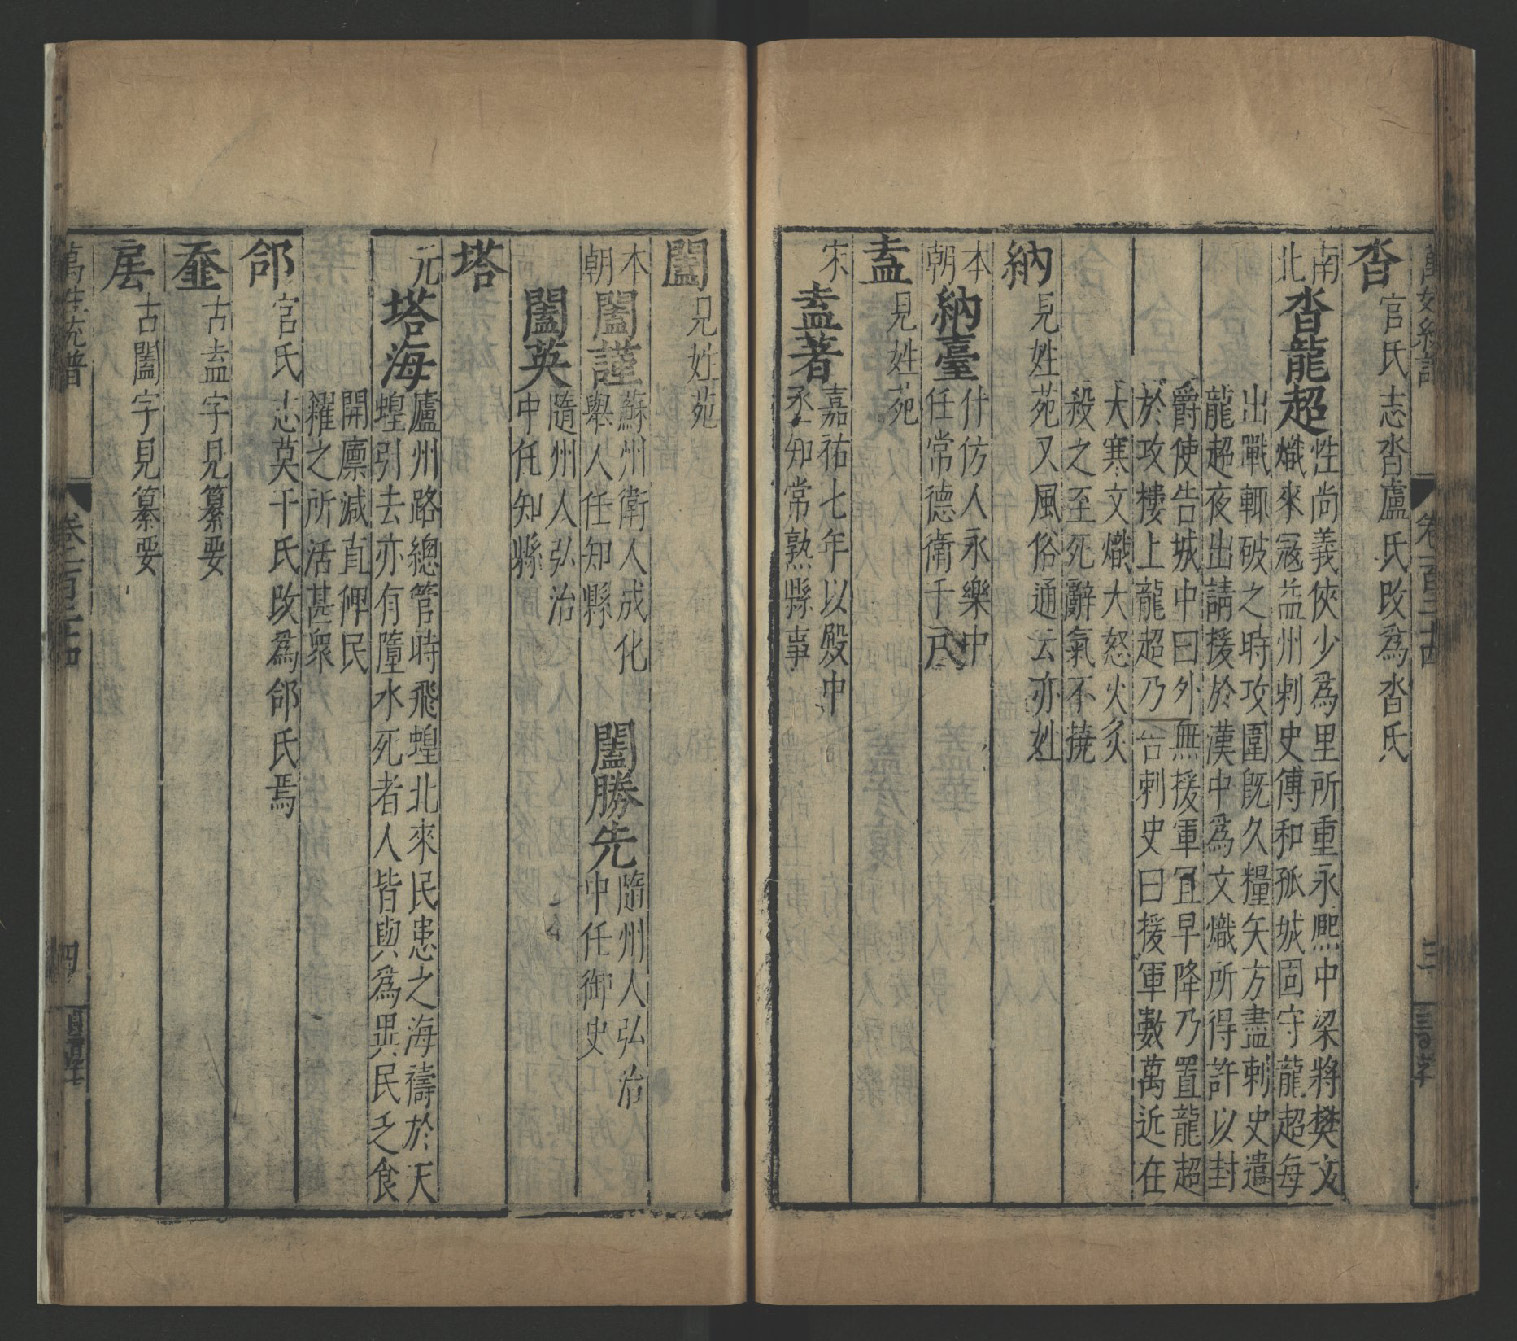 沓
官氏志沓盧氏改爲沓氏
南
北
沓龍超
性尚義俠少爲里所重永熙中梁將樊文
熾來寇益州刺史傅和孤城固守龍超每
出戰輒破之時攻圍既久糧矢方盡刺史遣
龍超夜出請援於漢中爲文熾所得許以封
爵使告城中曰外無援軍宜早降乃置龍超
於攻樓上龍超乃告刺史曰援軍數萬近在
大寒文熾大怒火炙
殺之至死辭氣不撓
納
見姓苑又風俗通云亦姓
本
朝
納臺
什仿人永樂中
任常德衛千戶
盍
見姓苑
宋
盍著
嘉祐七年以殿中
丞知常熟縣事
闔
見姓苑
本
朝
闔謹
蘇州衛人成化
舉人任知縣
闔勝先
隨州人弘治
中任御史
闔英
隨州人弘治
中任知縣
塔
元
塔海
廬州路總管時飛蝗北來民患之海禱於天
蝗引去亦有墮水死者人皆與爲異民乏食
開廪減直俾民
糴之所活甚衆
郃
官氏志莫干氏改爲郃氏焉
㿽
古盍字見纂要
㡉
古闔字見纂要
萬姓統譜
卷一百二十四
四